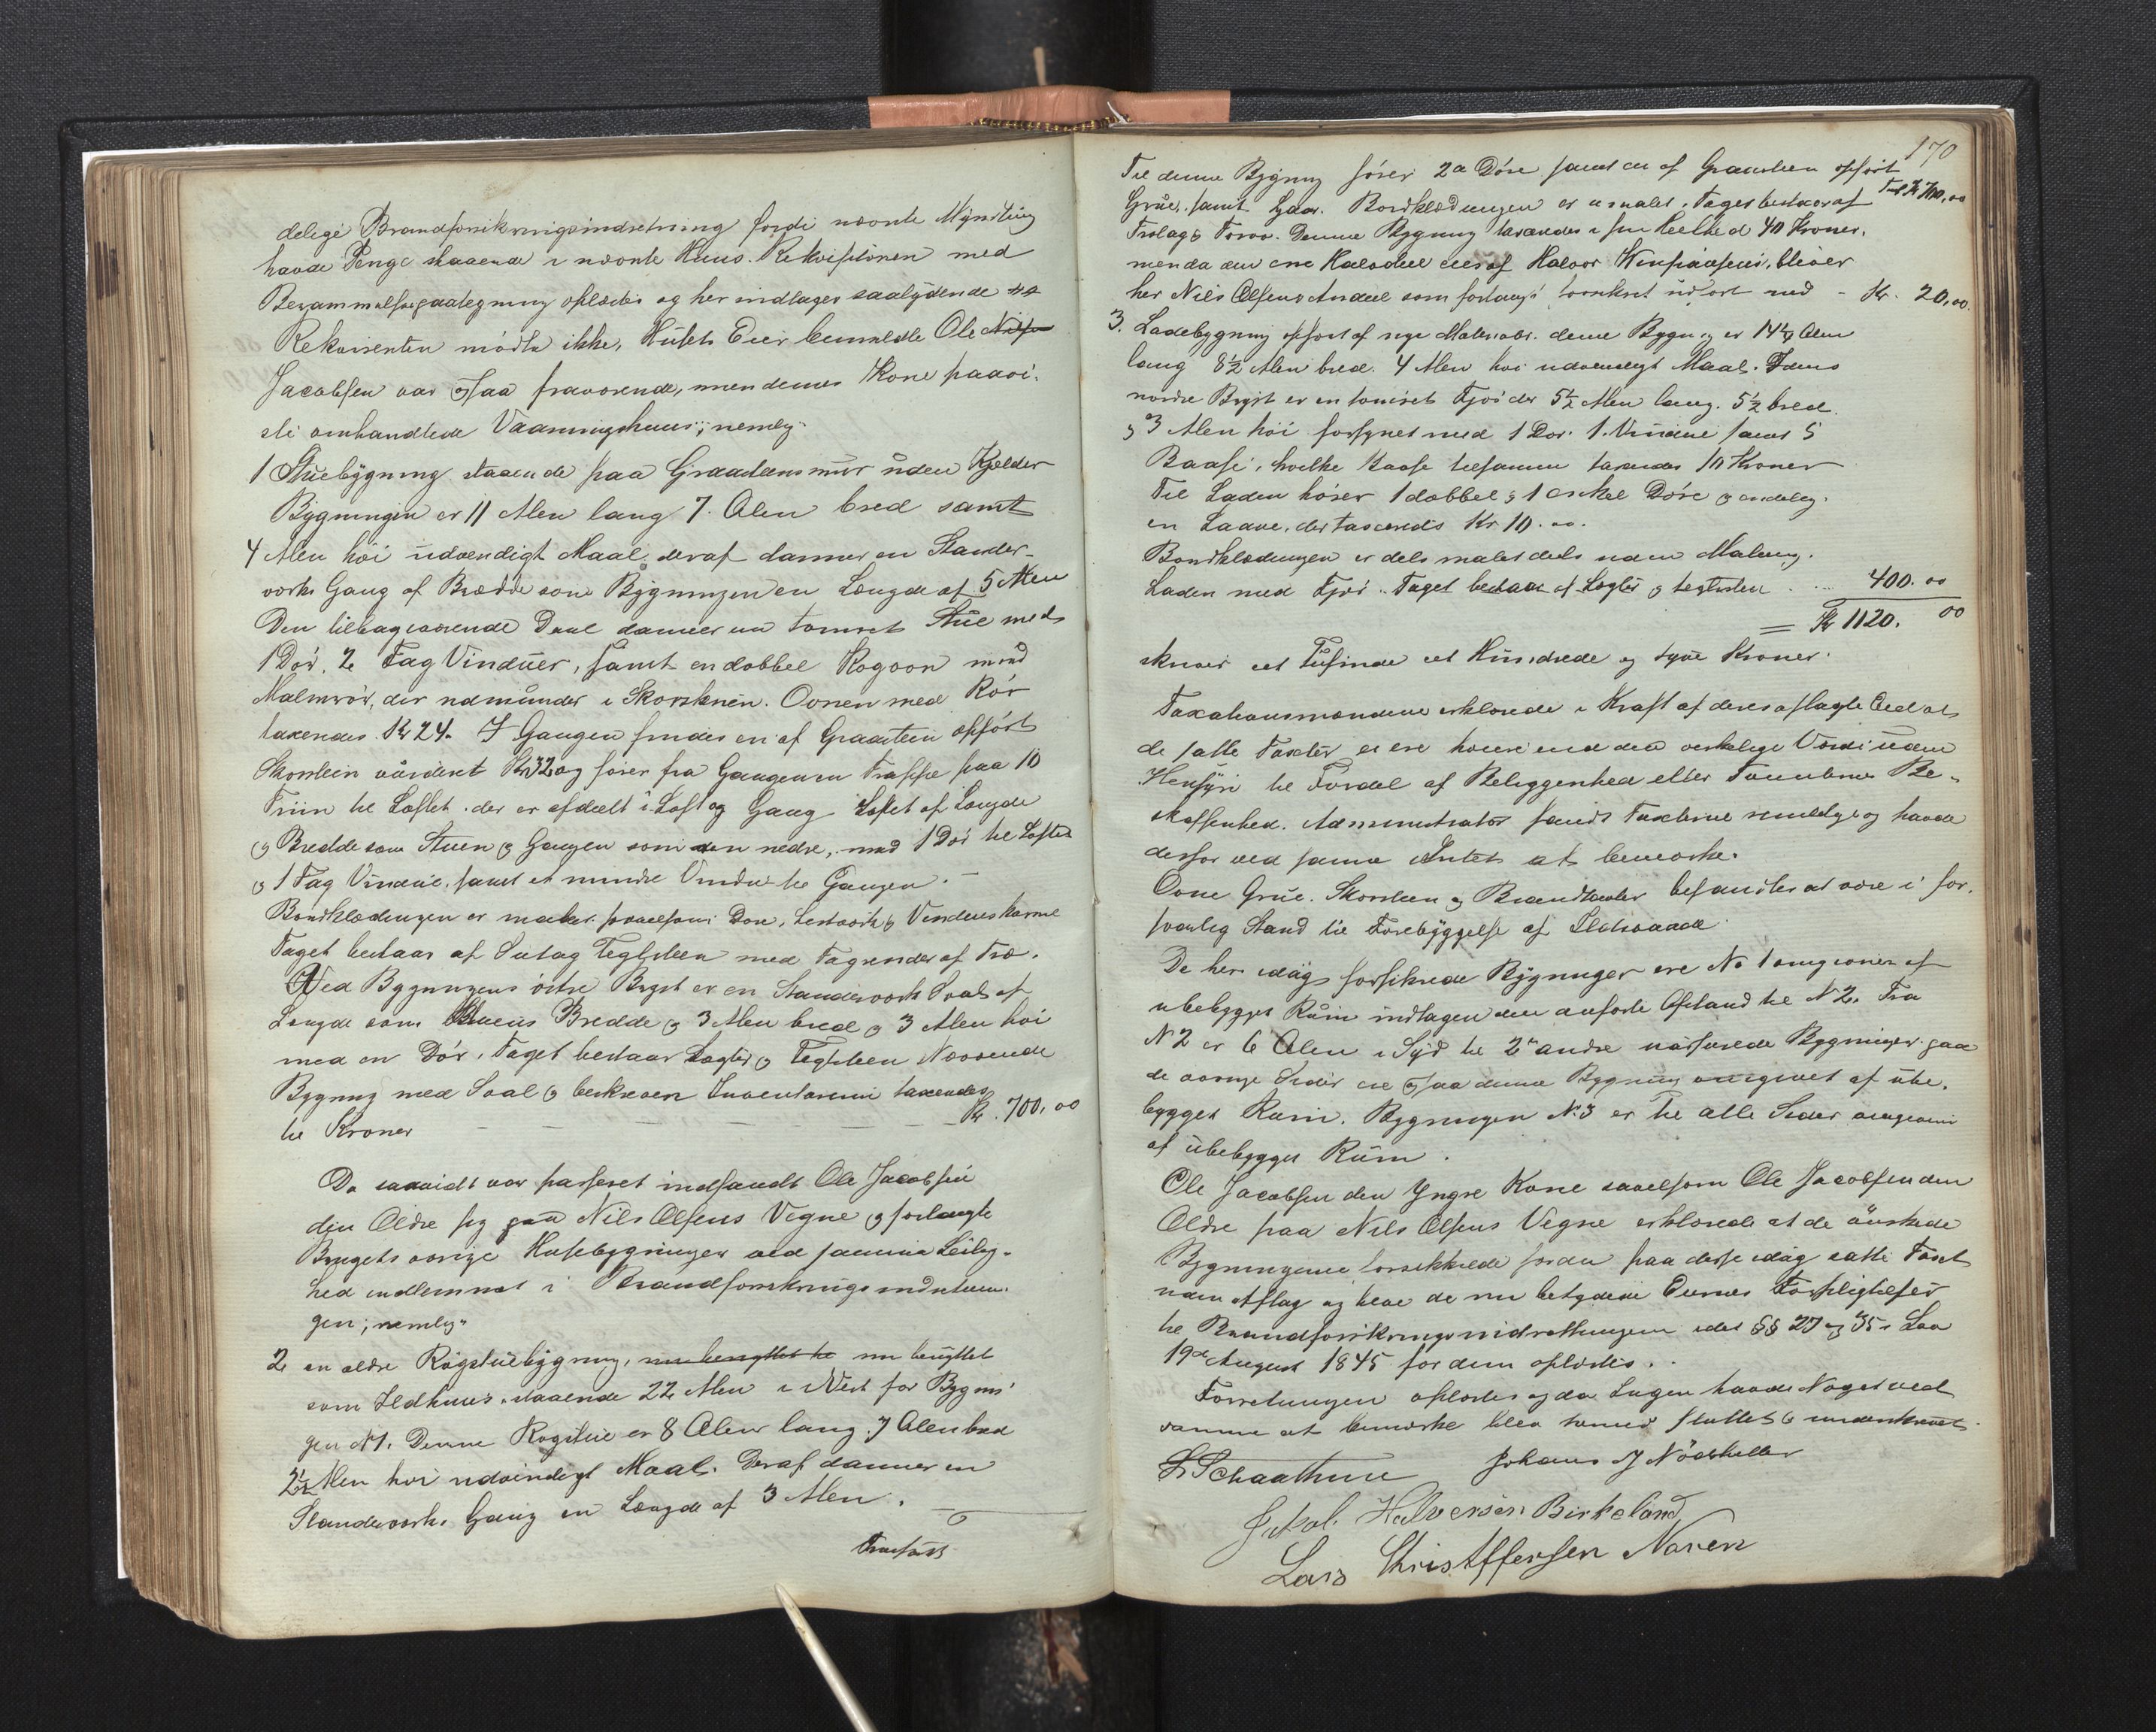 delige Brandforsikringsindretning fordi nævnte Myndling
havde Penge staaende i nævnte Huus. Rekvisitionen med
Berammelsespaategning oplæstes og her indtages saalydende
Rekvirenten mødte ikke, Husets Eier bemeldte Ole Nilsen
Jacobsen var ogsaa fraværende, men dennes Kone paavi-
ste omhandlede Vaaningshuus; nemlig:
1 Stuebygning staaende paa Graastensmur uden Kjelder
Bygningen er 11 Alen lang 7 Alen bred samt
4 Alen høi udvendigt Maal, deraf danner en Stander-
værks Gang af Bredde som Bygningen en Længde af 5 Alen
Den tilbageværende Deel danner en tømret Stue med
1 Dør, 2 Fag Vinduer, samt en dobbel Kogovn med
Malmrør, der udmunder i Skorstenen. Ovnen med Rør
taxeredes Kr 24. I Gangen findes en af Graasteen opført
Skorsteen vurderet Kr 32 og fører fra Gangen en Trappe paa 10
Triin til Loftet der er afdeelt i Loft og Gang Loftet af Længde
og Bredde som Stuen og Gangen som den nedre, med 1 Dør til Loftet
og 1 Fag Vindue, samt et mindre Vindue til Gangen.
Bordklædningen er malet saavelsom Døre, Listværk og Vindueskarme
Taget bestaar af Sutag Teglsteen med Tagrender af Træ.
Ved Bygningens østre Bryst er en Standerværk Sval af
Længde som Stuens Bredde og 3 Alen bred og 3 Alen høi
med en Dør, Taget bestaar Lagter og Teglsteen Nævnte
Bygning med Sval og beskreven Inventarium taxeredes
til Kroner — — — — — Kr. 700,00
Da saavidt var passeret indfandt Ole Jacobsen
den Ældre sig paa Nils Olsens Vegne og forlangte
Brugets øvrige Husebygninger ved samme Leilig-
hed indlemmet i Brandforsikringsindretnin-
gen; nemlig:
2 en ældre Røgstuebygning, nu benyttet til nu benyttet
som Ildhuus, staaende 22 Alen i Vest for Bygnin-
gen N 1. Denne Røgstue er 8 Alen lang 7 Alen bred
2½ Alen høi udvendigt Maal. Deraf danner en
Standerværks Gang en Længde af 3 Alen.
Transport
170
Til denne Bygning fører 2de Døre samt en af Graasteen opført
Grue, samt Ljor. Bordklædningen er umalet. Taget bestaar af Trsp. Kr 700,00
Trolag & Torv. Denne Bygning taxeredes i sin Heelhed 40 Kroner.
men da den ene Halvdeel eies af Halvor, bliver
her Nils Olsens Andeel som forlanges udført med - Kr. 20,00
3. Ladebygning opført af nye Materialer. denne Bygning er 14½ Alen
lang 8½ Alen bred. 4 Alen høi udvendigt Maal. I dens
nordre Bryst er en tømret Fjøs der 5½ Alen lang. 5½ bred
og 3 Alen høi forsynet med 1 Dør. 1 Vindue samt 5
Baase, hvilke Baase tilsammen taxeredes 10 Kroner
Til Laden hører 1 dobbel og 1 enkel Døre og endelig
en Laave, der taxeredes Kr. 10.00.
Bordklædningen er dels malet dels uden Maling.
Laden med Fjøs. Taget bestaar af Lagter og teglsteen ... 400.00
= Kr 1120. 00
skriver eet Tusinde eet Hundrede og tyve Kroner.
Taxationsmændene erklærede i Kraft af deres aflagte Eed at
de satte Taxter ei ere høiere end den virkelige Værdi uden
Hensyn til Fordel af Beliggenhed eller Tomternes Be-
skaffenhed. Administrator fandt Taxterne rimelige og havde
derfor ved samme Intet at bemærke.
Ovne Grue. Skorsteen og Brandtavler befandtes at være i for-
svarlig Stand til Forebyggelse af Ildsvaade.
De her idag forsikrede Bygninger ere No 1 omgiven af
ubebygget Rum undtagen den anførte Afstand til N 2. Fra
N 2 er 6 Alen i Syd til 2de andre uassurerede Bygninger. paa
de øvrige Sider ere ogsaa denne Bygning omgivet af ube-
bygget Rum. Bygningen N. 3 er til alle Sider omgiven
af ubebygget Rum.
Ole Jacobsen den Yngre Kone saavelsom Ole Jacobsen den
Ældre paa Nils Olsens Vegne erklærede at de ønskede
Bygningerne forsikkrede for den paa disse idag satte Taxt
uden Afslag og bleve de nu betydede Eiernes Forpligtelser
til Brandforsikringsindretningen efter §§ 27 og 35 i Lov
19de August 1845 for dem oplæstes.
Forretningen oplæstes og da Ingen havde Noget ved
samme at bemærke blev samme sluttet og underskrevet.
Schaathun Johans J Nödskelter
Jakob Halversen Birkeland
Lars Christoffersen Naven